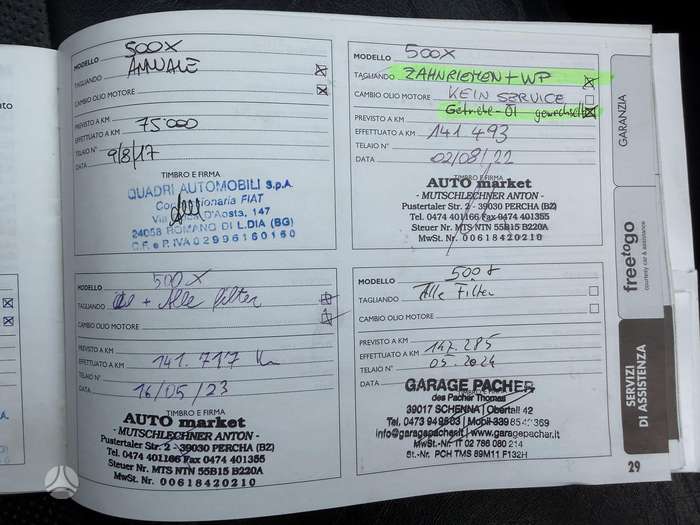 ato
MODELLO 500X
TAGLIANDO ANNUALE
CAMBIO OLIO MOTORE
PREVISTO A KM
EFFETTUATO A KM 75000
TELAIO N°
DATA 9/8/17
TIMBRO E FIRMA
QUADRI AUTOMOBILI S.p.A.
Concessionaria FIAT
Via D'Aosta, 147
24058 ROMANO DI L.DIA (BG)
C.F. e P. IVA 02996160160
MODELLO 500X
TAGLIANDO ZAHNRIEMEN + WP
CAMBIO OLIO MOTORE KEIN SERVICE
Getriebe-Öl gewechselt
PREVISTO A KM
EFFETTUATO A KM 141.493
TELAIO N°
DATA 02/08/22
TIMBRO E FIRMA
AUTO market
- MUTSCHLECHNER ANTON -
Pustertaler Str. 2 - 39030 PERCHA (BZ)
Tel. 0474 401166 Fax 0474 401355
Steuer Nr. MTS NTN 55B15 B220A
MwSt. Nr. 00618420210
MODELLO 500X
TAGLIANDO + Alle filter
CAMBIO OLIO MOTORE
PREVISTO A KM
EFFETTUATO A KM 141.717 Km
TELAIO N°
DATA 16/05/23
TIMBRO E FIRMA
AUTO market
- MUTSCHLECHNER ANTON -
Pustertaler Str. 2 - 39030 PERCHA (BZ)
Tel. 0474 401166 Fax 0474 401355
Steuer Nr. MTS NTN 55B15 B220A
MwSt. Nr. 00618420210
MODELLO 500X
TAGLIANDO Alle Filter
CAMBIO OLIO MOTORE
PREVISTO A KM
EFFETTUATO A KM 147.285
TELAIO N° 05.2024
DATA
TIMBRO E FIRMA
GARAGE PACHER
des Pacher Thomas
39017 SCHENNA | Obertall 42
Tel. 0473 949603 | Mobil 339 85 469
info@garagepacher.it | www.garagepacher.it
MwSt.-Nr. IT 02 786 080 214
St.-Nr. PCH TMS 89M11 F132H
GARANZIA
freetogo
courtesy car & assistance
SERVIZI
DI ASSISTENZA
29